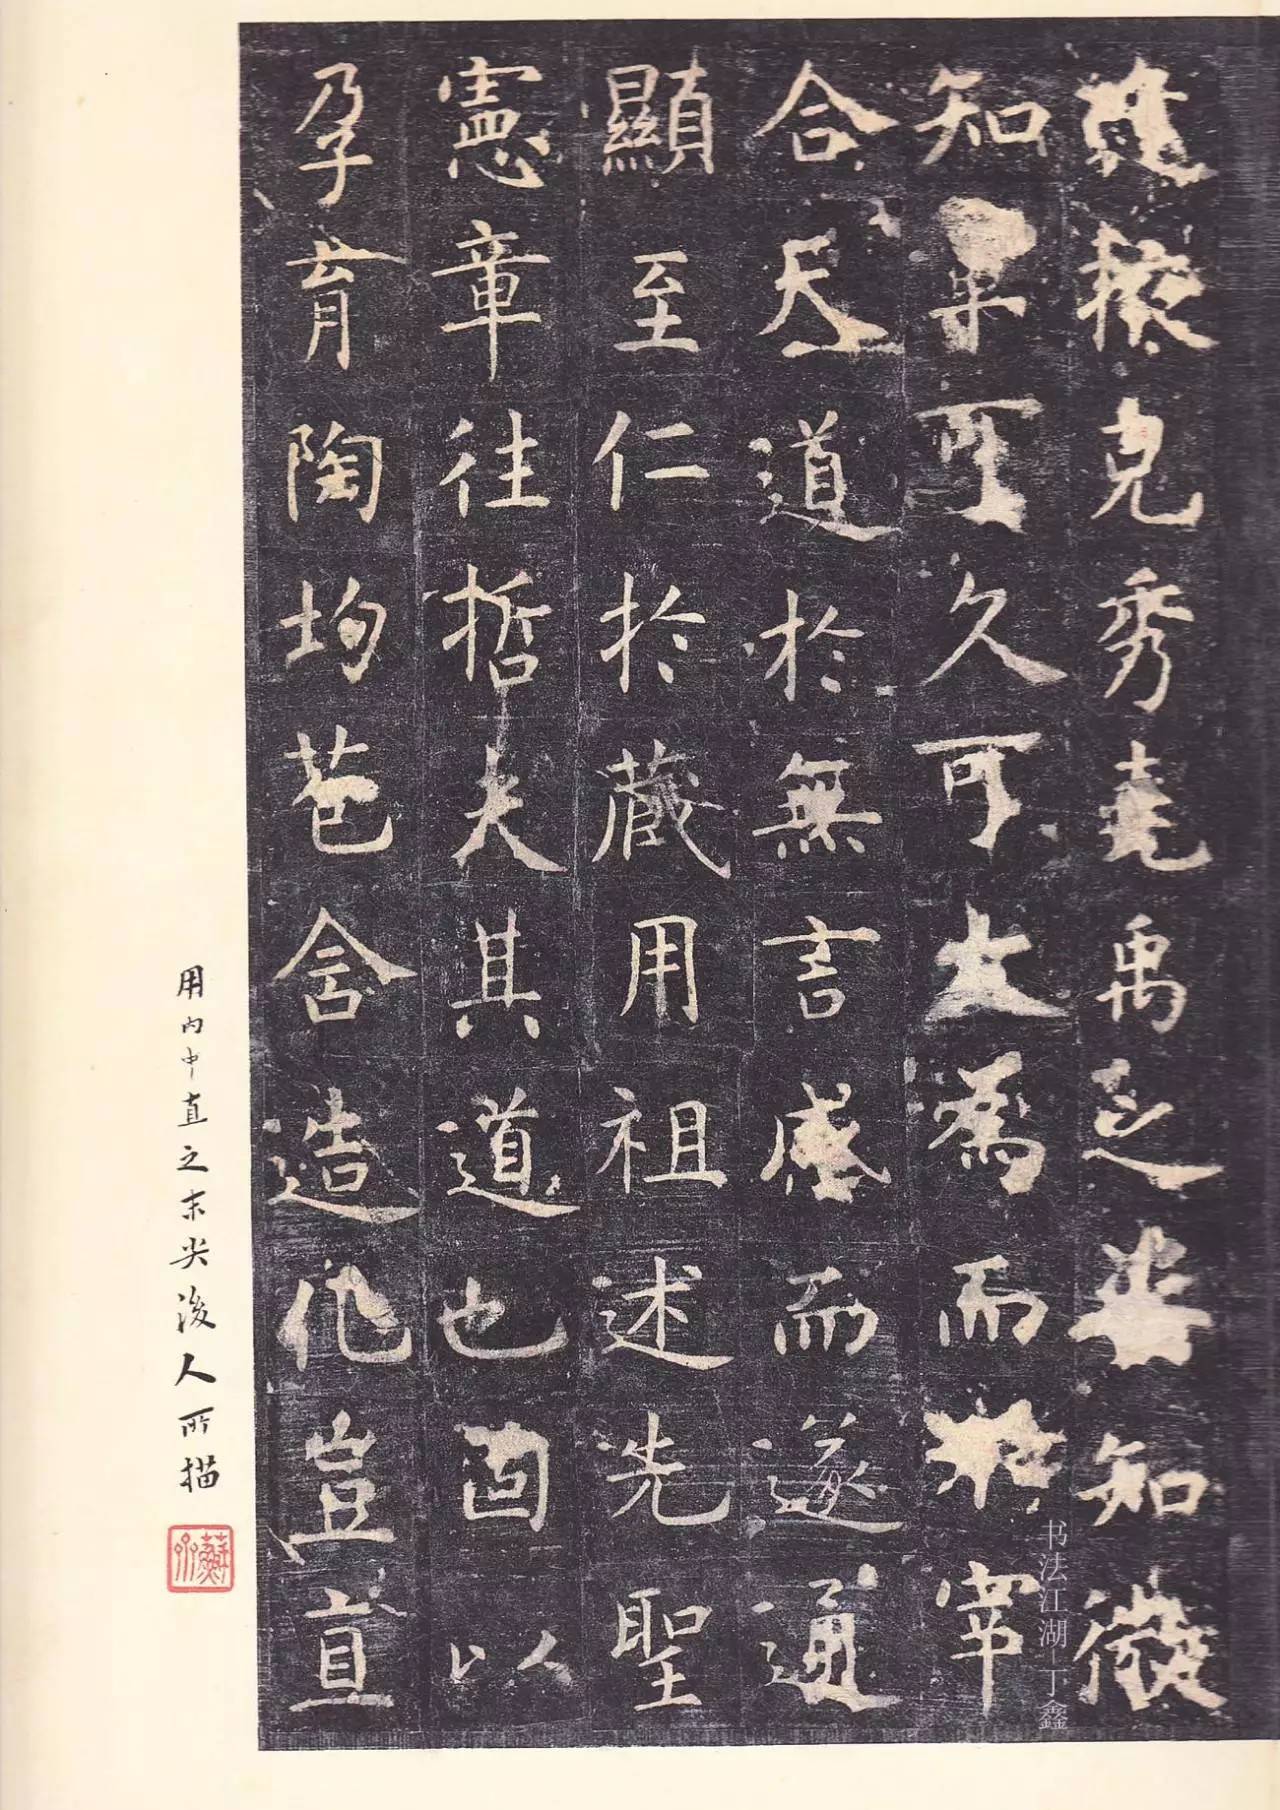 逢掖克秀堯禹之姿知微
知章可久可大為而不宰
合天道於無言感而遂通
顯至仁於藏用祖述先聖
憲章往哲夫其道也固以
孕育陶均苞含造化豈直
用内中直之末尖後人所描
书法江湖-丁鑫